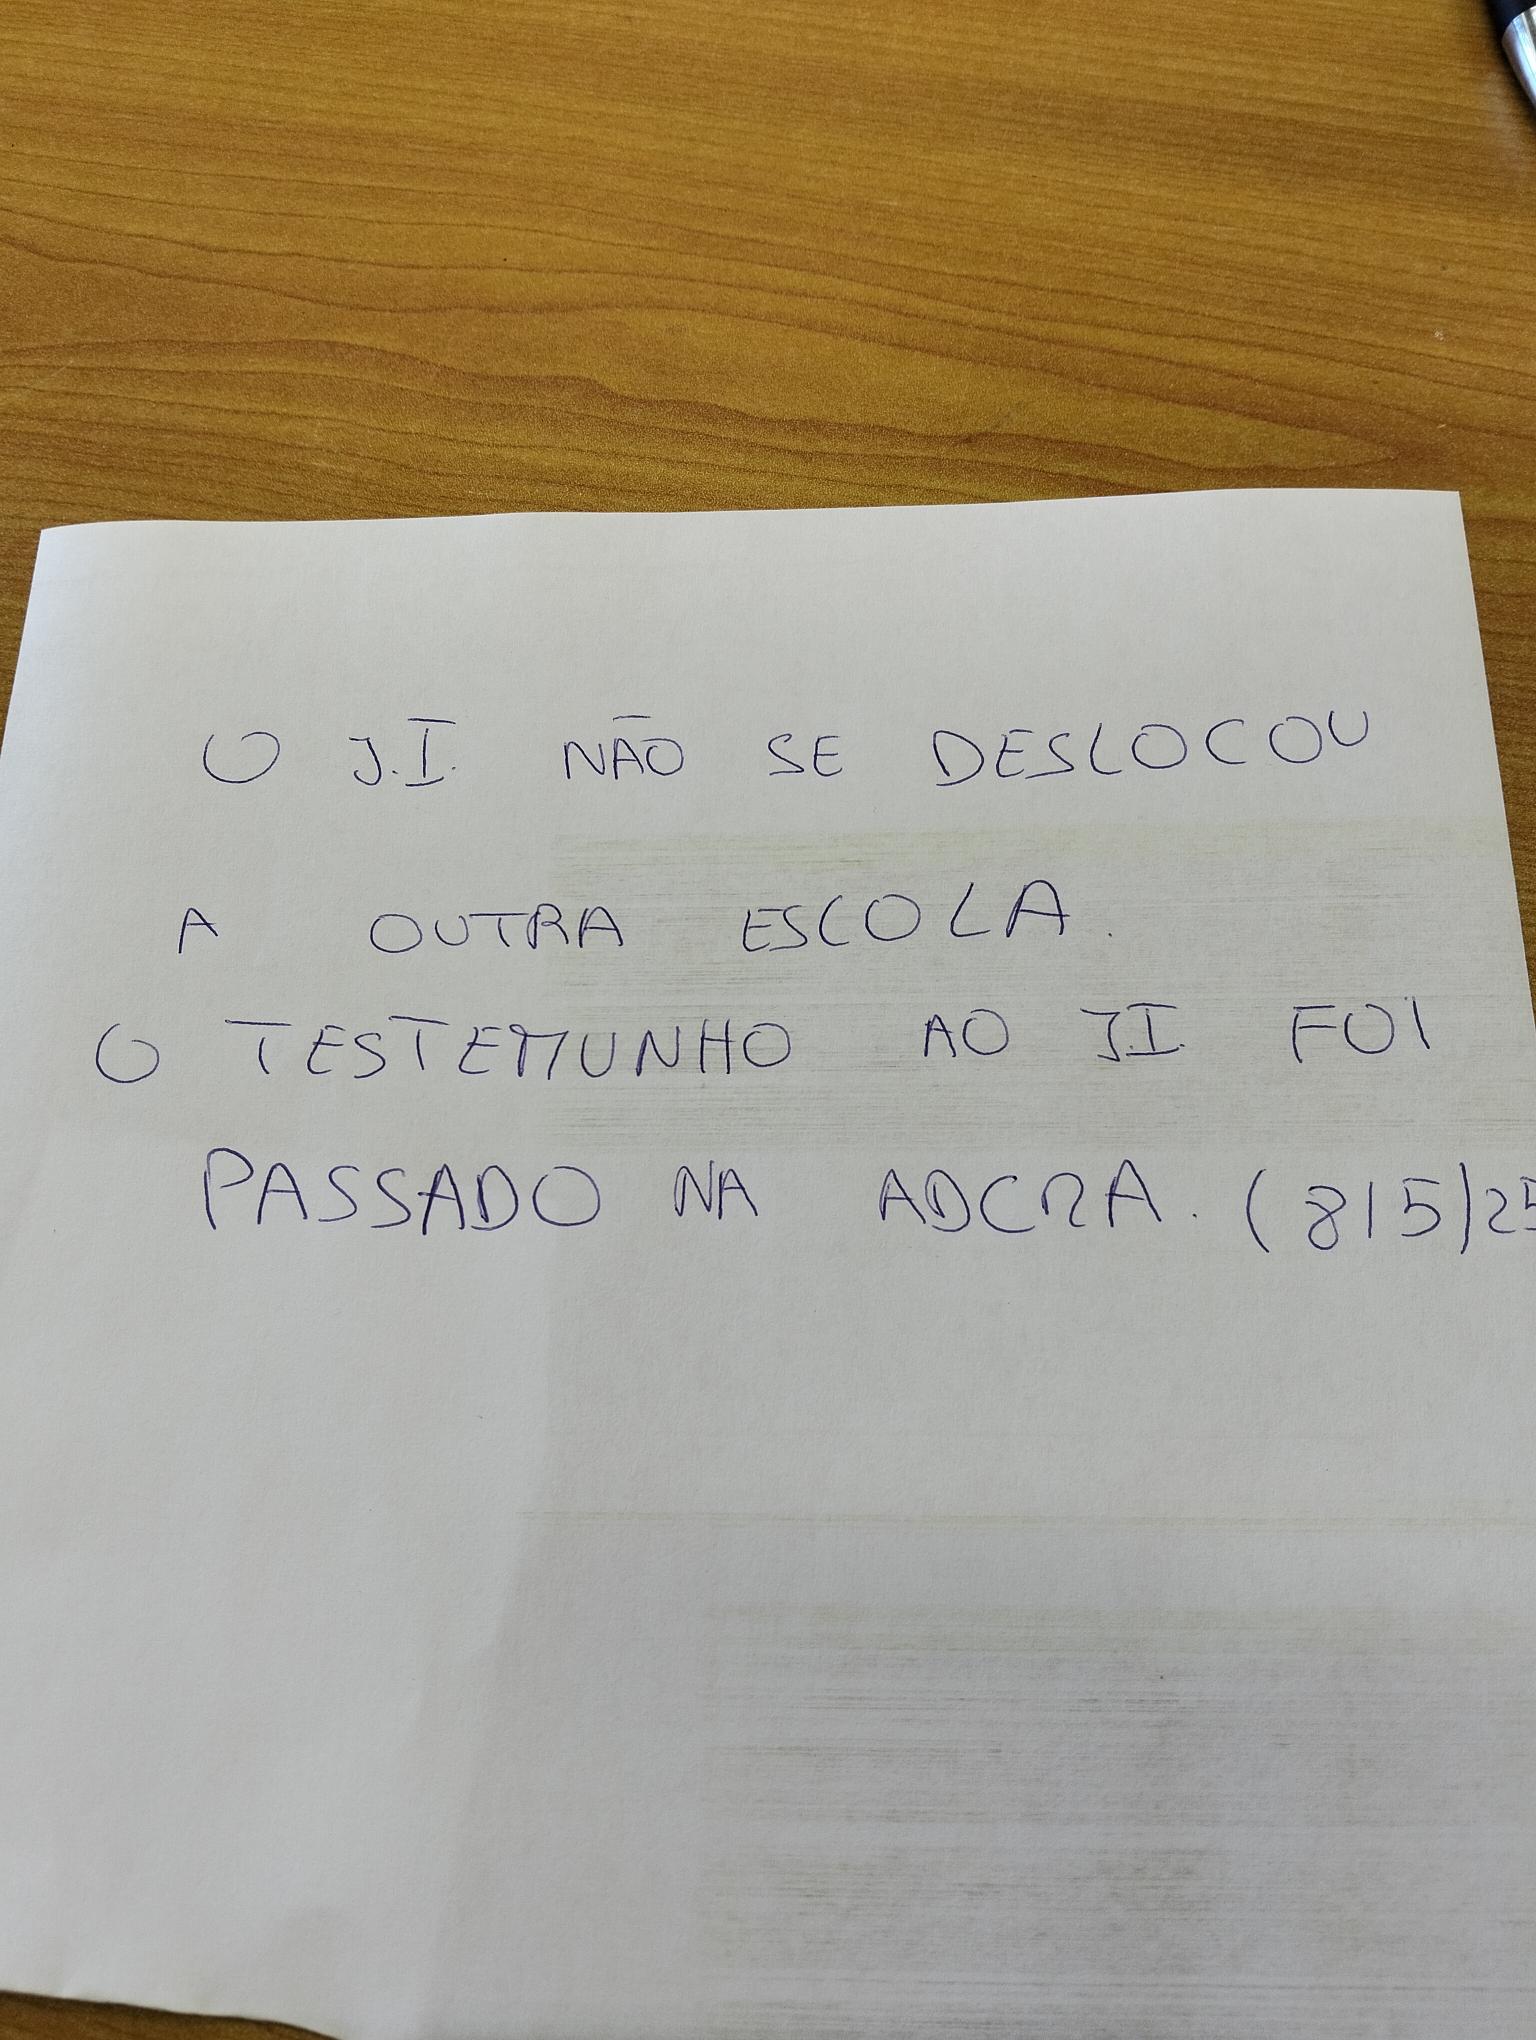 O J.I. NÃO SE DESLOCOU
A OUTRA ESCOLA.
O TESTEMUNHO AO J.I. FOI
PASSADO NA ADCRA. (8/5/25